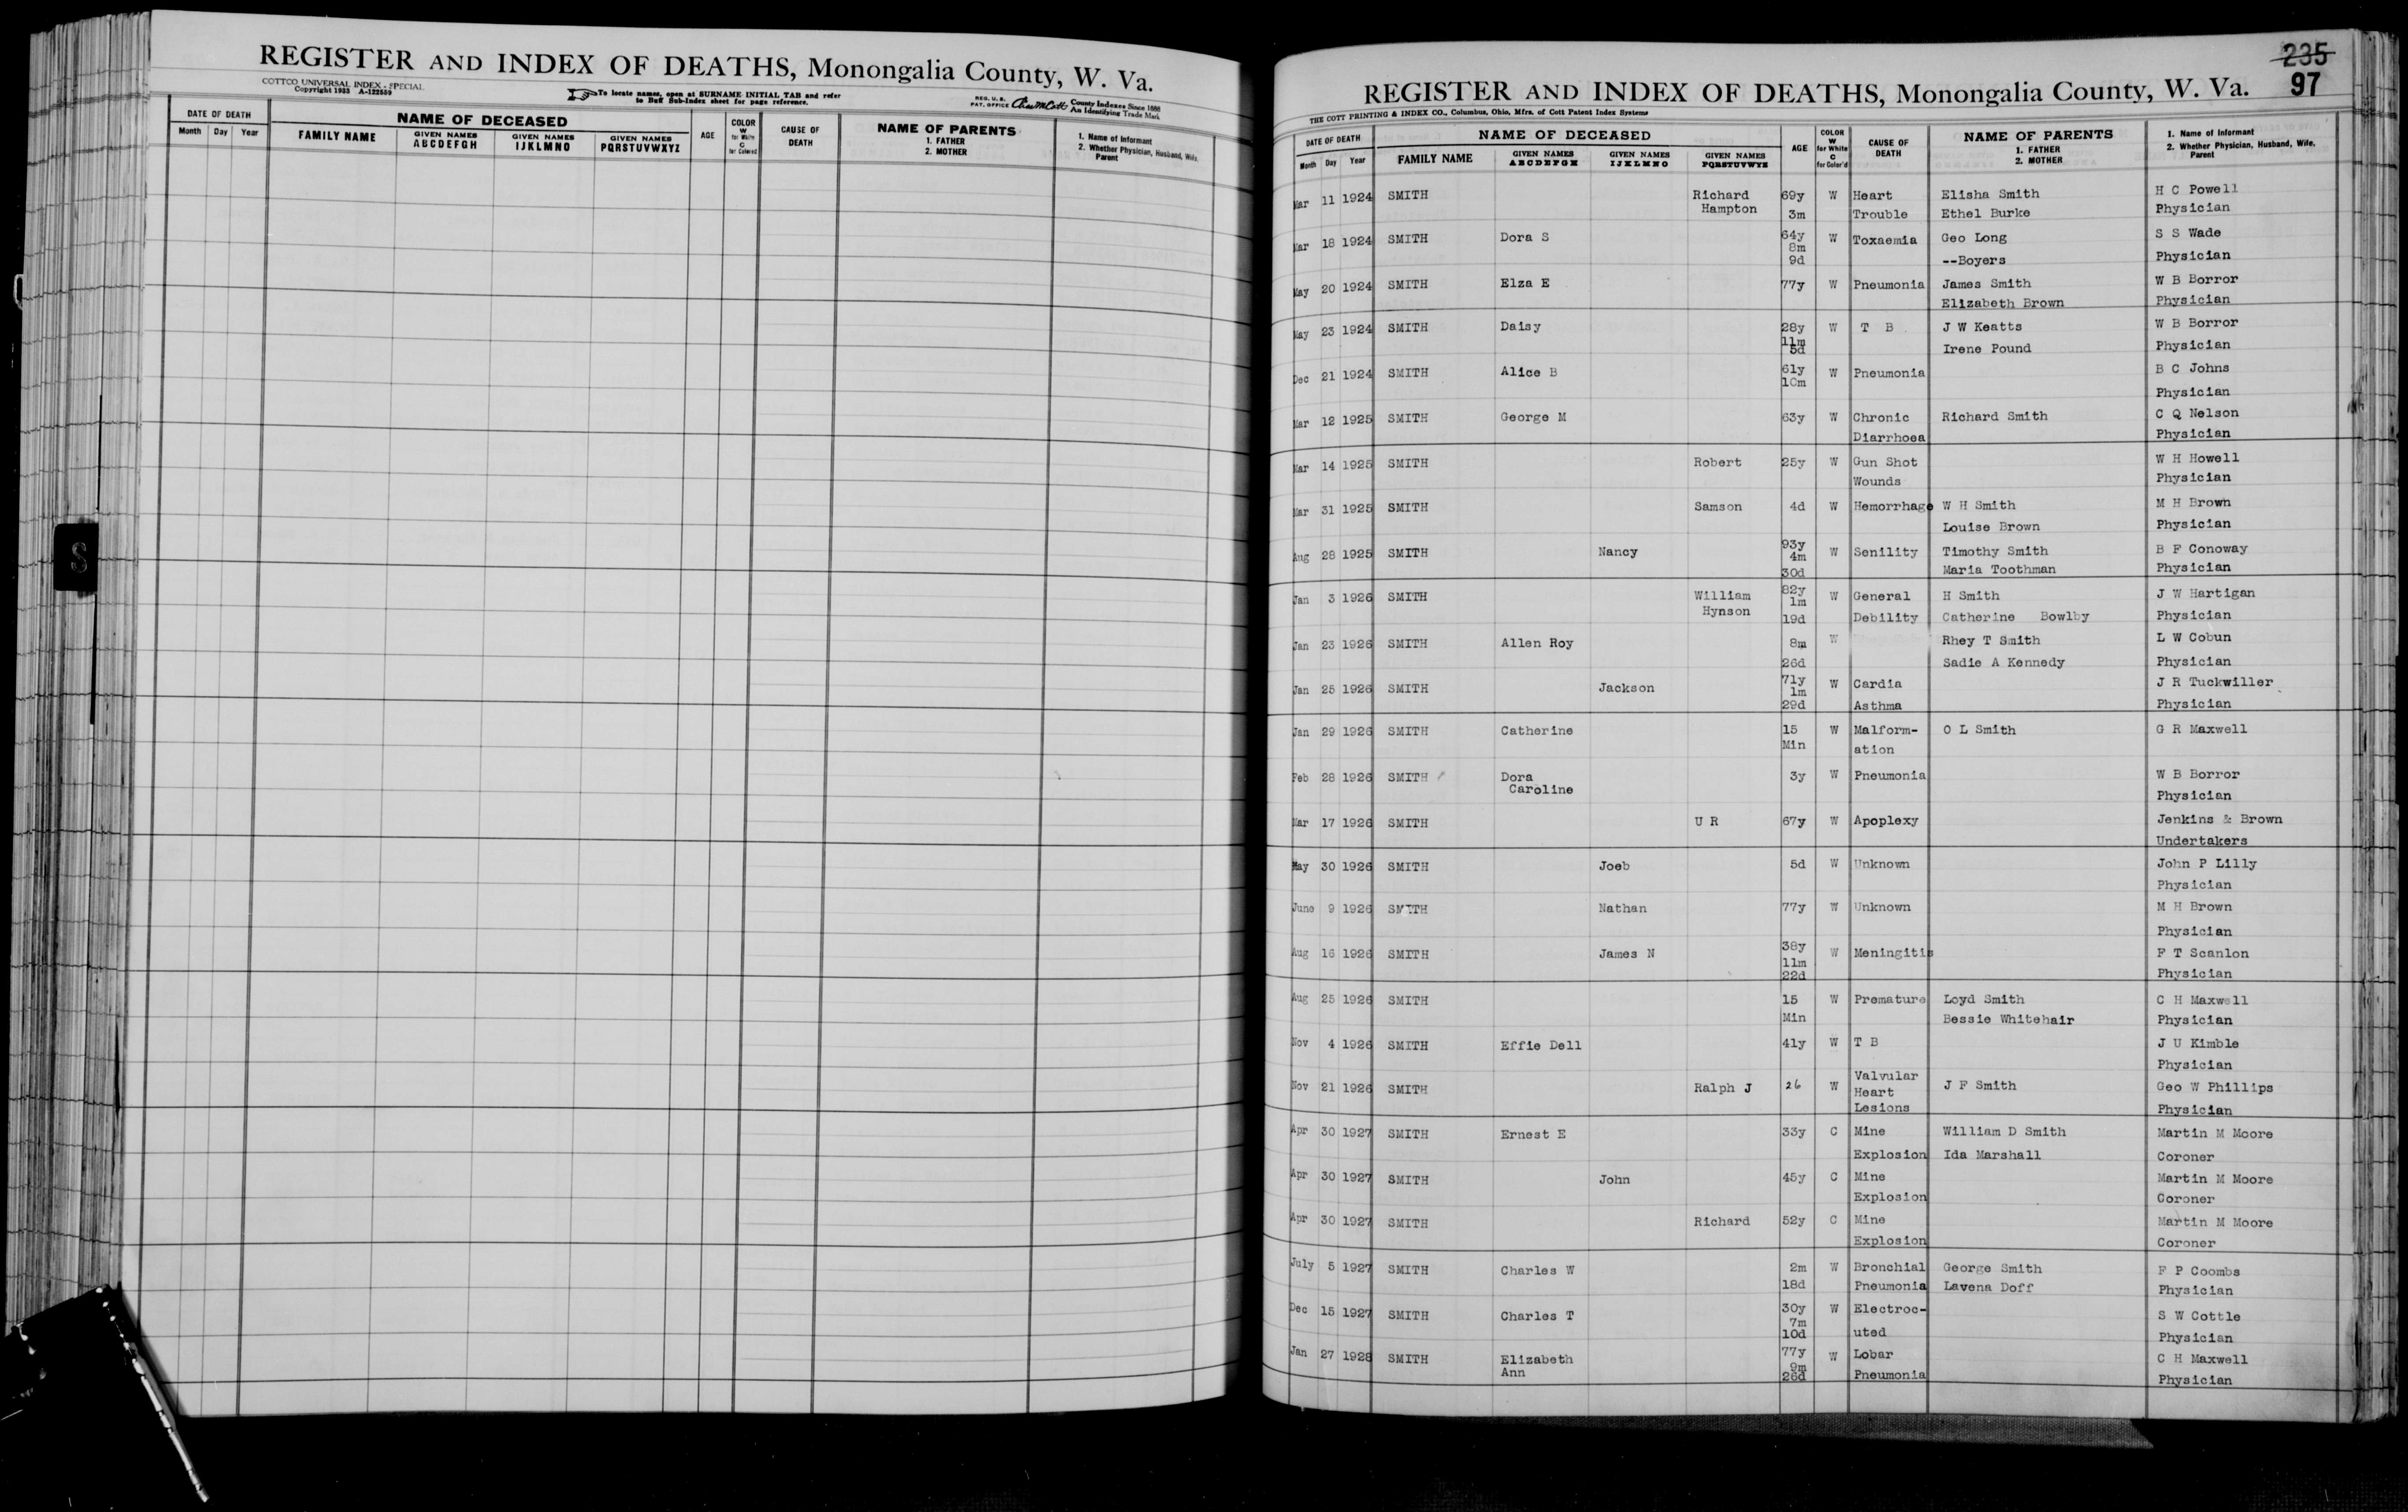 REGISTER AND INDEX OF DEATHS, Monongalia County, W. Va.
COTTCO UNIVERSAL INDEX - SPECIAL
Copyright 1933 A-122559
To locate names, open at SURNAME INITIAL TAB and refer
to Buff Sub-Index sheet for page reference.
REG. U. S.
PAT. OFFICE
County Indexes Since 1888
An Identifying Trade Mark
DATE OF DEATH NAME OF DECEASED AGE COLOR W for White C for Colored CAUSE OF DEATH NAME OF PARENTS 1. FATHER 2. MOTHER 1. Name of Informant 2. Whether Physician, Husband, Wife, Parent
Month Day Year FAMILY NAME GIVEN NAMES ABCDEFGH GIVEN NAMES IJKLMNO GIVEN NAMES PQRSTUVWXYZ
S
235
97
REGISTER AND INDEX OF DEATHS, Monongalia County, W. Va.
THE COTT PRINTING & INDEX CO., Columbus, Ohio, Mfrs. of Cott Patent Index Systems
DATE OF DEATH NAME OF DECEASED AGE COLOR W for White C for Color'd CAUSE OF DEATH NAME OF PARENTS 1. FATHER 2. MOTHER 1. Name of Informant 2. Whether Physician, Husband, Wife, Parent
Month Day Year FAMILY NAME GIVEN NAMES ABCDEFGH GIVEN NAMES IJKLMNO GIVEN NAMES PQRSTUVWXYZ
Mar 11 1924 SMITH Richard 69y W Heart Elisha Smith H C Powell
Hampton 3m Trouble Ethel Burke Physician
Mar 18 1924 SMITH Dora S 64y W Toxaemia Geo Long S S Wade
8m
9d --Boyers Physician
May 20 1924 SMITH Elza E 77y W Pneumonia James Smith W B Borror
Elizabeth Brown Physician
May 23 1924 SMITH Daisy 28y W T B J W Keatts W B Borror
11m
5d Irene Pound Physician
Dec 21 1924 SMITH Alice B 61y W Pneumonia B C Johns
10m Physician
Mar 12 1925 SMITH George M 63y W Chronic Richard Smith C Q Nelson
Diarrhoea Physician
Mar 14 1925 SMITH Robert 25y W Gun Shot W H Howell
Wounds Physician
Mar 31 1925 SMITH Samson 4d W Hemorrhage W H Smith M H Brown
Louise Brown Physician
Aug 28 1925 SMITH Nancy 93y W Senility Timothy Smith B F Conoway
4m
30d Maria Toothman Physician
Jan 3 1926 SMITH William 82y W General H Smith J W Hartigan
Hynson 1m
19d Debility Catherine Bowlby Physician
Jan 23 1926 SMITH Allen Roy 8m W Rhey T Smith L W Cobun
26d Sadie A Kennedy Physician
Jan 25 1926 SMITH Jackson 71y W Cardia J R Tuckwiller
1m
29d Asthma Physician
Jan 29 1926 SMITH Catherine 15 W Malform- O L Smith G R Maxwell
Min ation
Feb 28 1926 SMITH Dora 3y W Pneumonia W B Borror
Caroline Physician
Mar 17 1926 SMITH U R 67y W Apoplexy Jenkins & Brown
Undertakers
May 30 1926 SMITH Joeb 5d W Unknown John P Lilly
Physician
June 9 1926 SMITH Nathan 77y W Unknown M H Brown
Physician
Aug 16 1926 SMITH James N 38y W Meningitis F T Scanlon
11m
22d Physician
Aug 25 1926 SMITH 15 W Premature Loyd Smith C H Maxwell
Min Bessie Whitehair Physician
Nov 4 1926 SMITH Effie Dell 41y W T B J U Kimble
Physician
Nov 21 1926 SMITH Ralph J 26 W Valvular J F Smith Geo W Phillips
Heart
Lesions Physician
Apr 30 1927 SMITH Ernest E 33y C Mine William D Smith Martin M Moore
Explosion Ida Marshall Coroner
Apr 30 1927 SMITH John 45y C Mine Martin M Moore
Explosion Coroner
Apr 30 1927 SMITH Richard 52y C Mine Martin M Moore
Explosion Coroner
July 5 1927 SMITH Charles W 2m W Bronchial George Smith F P Coombs
18d Pneumonia Lavena Doff Physician
Dec 15 1927 SMITH Charles T 30y W Electroc- S W Cottle
7m
10d uted Physician
Jan 27 1928 SMITH Elizabeth 77y W Lobar C H Maxwell
Ann 9m
26d Pneumonia Physician